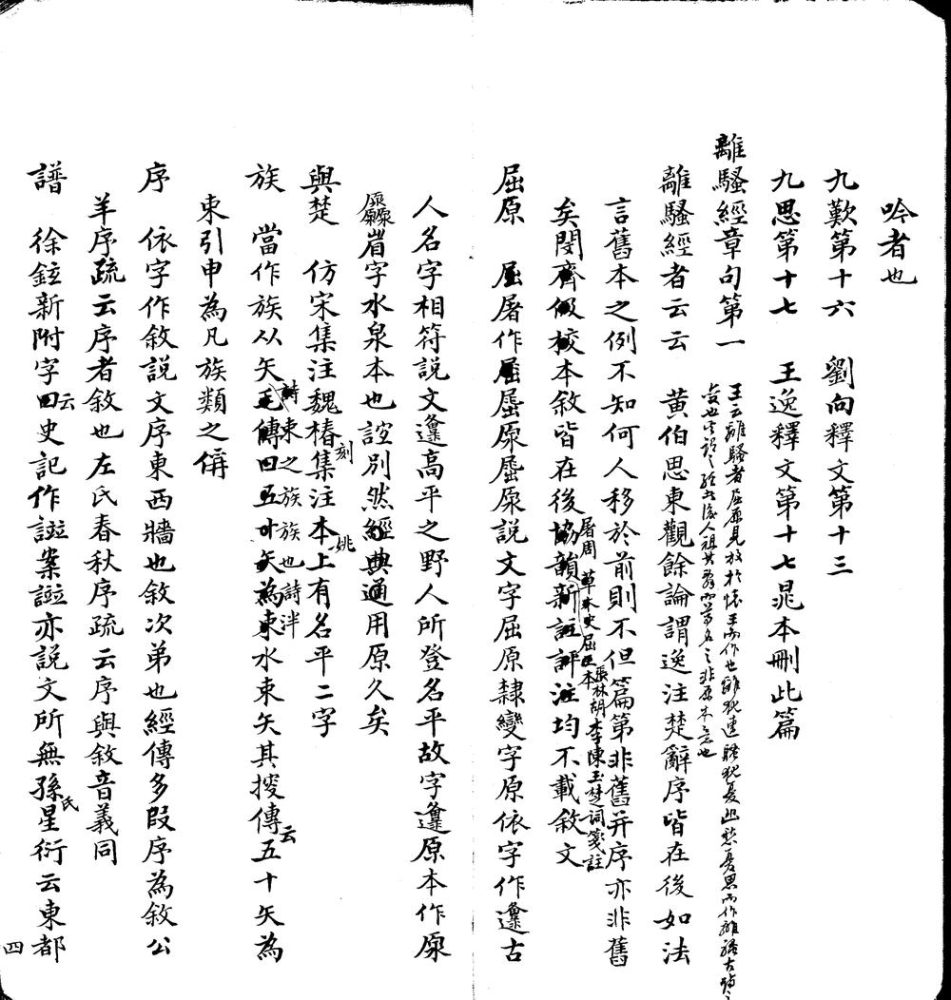 吟者也
九歎第十六　劉向釋文第十三
九思第十七　王逸釋文第十七晁本刪此篇
離騷經章句第一
王云離騷者屈原見放於懷王而作也離
離騷經者云云　黃伯思東觀餘論謂逸注楚辭序皆在後如法
言舊本之例不知何人移於前則不但篇第非舊并序亦非舊
矣閔齊伋校本敘皆在後協韻新註評注均不載敘文
屠周
草木史屈
本
張林胡李陳玉楚詞箋註
屈原　屈屠作屈屈原屈原説文字屈原隸變字原依字作邍古
人名字相符説文邍高平之野人所登名平故字邍原本作原
厵省字水泉本也誼別然經典通用原久矣
與楚　仿宋集注魏椿集注本上有名平二字
刻
姚
族　當作族从矢毛傳曰五十矢為束水束矢其搜傳五十矢為
詩束之族族也詩泮
云
束引申為凡族類之偁
序　依字作敘説文序東西牆也敘次弟也經傳多叚序為敘公
羊序疏云序者敘也左氏春秋序疏云序與敘音義同
譜　徐鉉新附字曰史記作諩案諩亦説文所無孫星衍云東都
云
氏
四